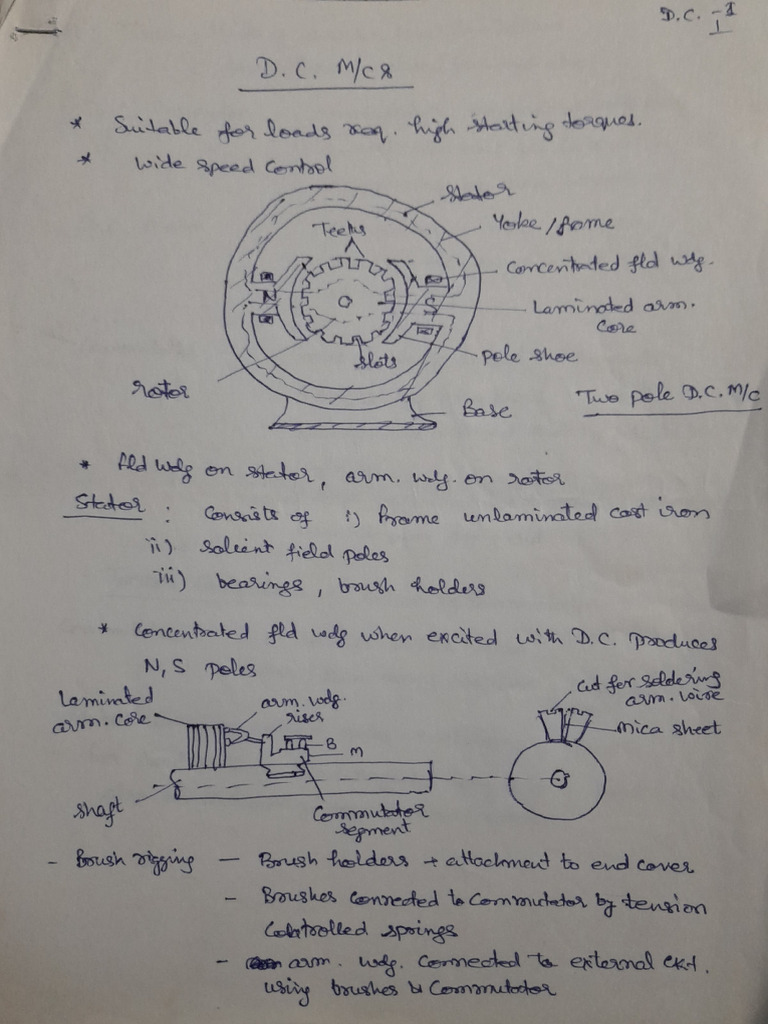 D.C. -1
I
D.C. M/cs
* Suitable for loads req. high starting torques.
* Wide speed control
Stator
Teeths
Yoke / frame
Concentrated fld wdg.
N
S
Laminated arm.
core
slots
pole shoe
rotor
Base
Two pole D.C. M/C
* fld wdg on stator, arm. wdg. on rotor
Stator : Consists of i) Frame unlaminated cast iron
ii) salient field poles
iii) bearings, brush holders
* Concentrated fld wdg when excited with D.C. produces
N, S poles
Laminated
arm. core
arm. wdg.
riser
B
M
shaft
Commutator
segment
cut for soldering
arm. wire
Mica sheet
- Brush rigging - Brush holders + attachment to end cover
- Brushes connected to Commutator by tension
Controlled springs
- arm. wdg. connected to external ckt.
using brushes & Commutator